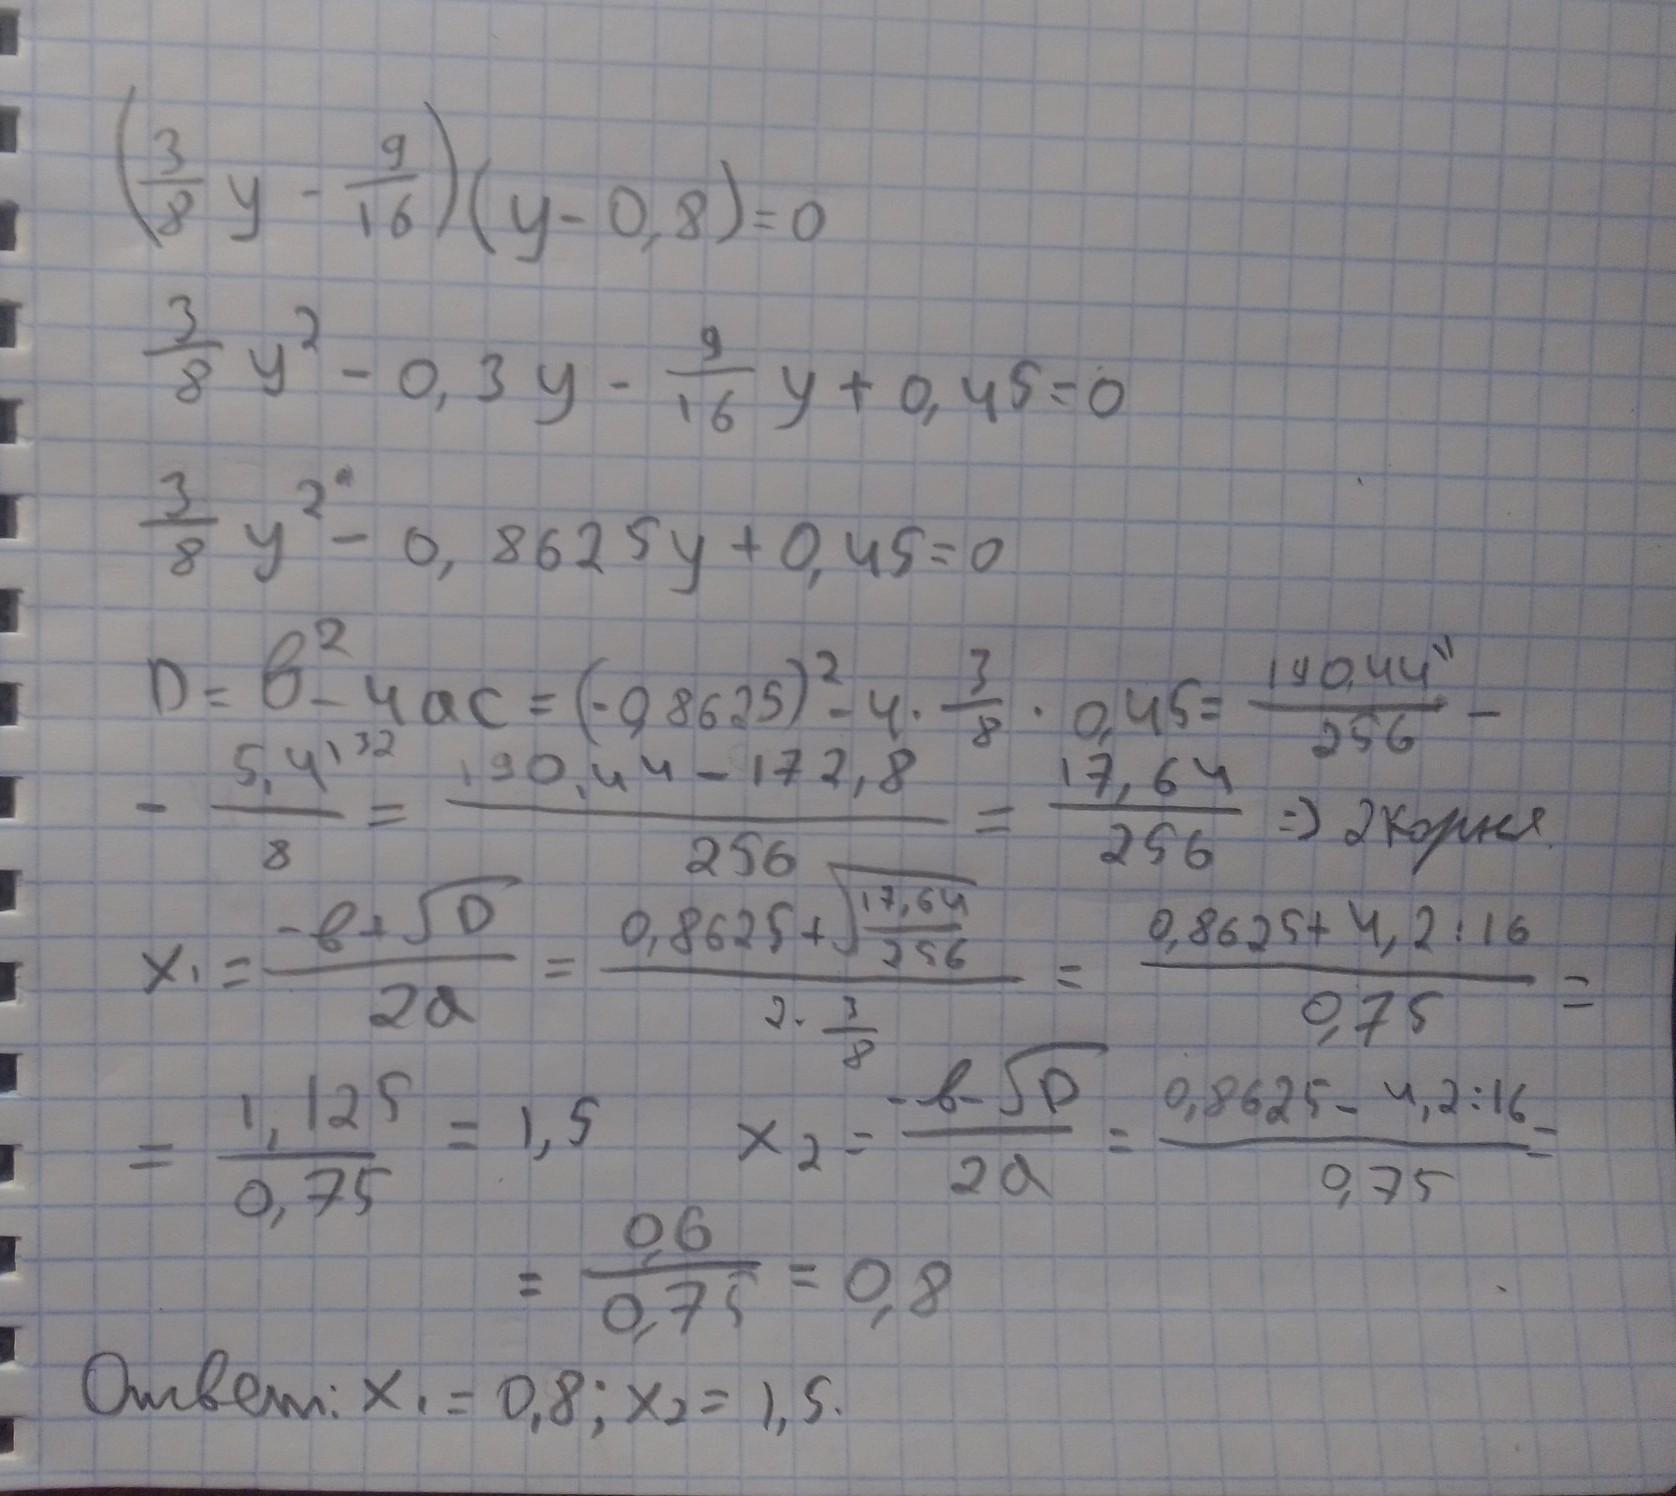 (3/8 y - 9/16)(y - 0,8) = 0
3/8 y² - 0,3y - 9/16 y + 0,45 = 0
3/8 y² - 0,8625y + 0,45 = 0
D = в² - 4ac = (-0,8625)² - 4 · 3/8 · 0,45 = 190,44/256 -
- 5,4/8 = (190,44 - 172,8)/256 = 17,64/256 => 2 корня.
x₁ = (-в + √D)/2a = (0,8625 + √(17,64/256))/(2 · 3/8) = (0,8625 + 4,2 : 16)/0,75 =
= 1,125/0,75 = 1,5 x₂ = (-в - √D)/2a = (0,8625 - 4,2 : 16)/0,75 =
= 0,6/0,75 = 0,8
Ответ: x₁ = 0,8; x₂ = 1,5.